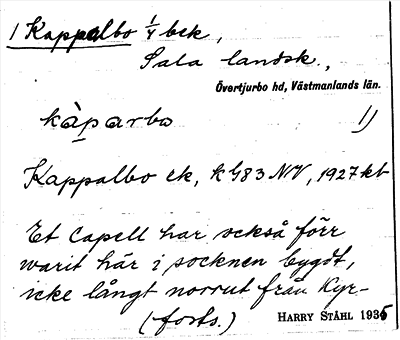 1 Kappalbo 1/4 bek,
Sala landsk.,
Övertjurbo hd, Västmanlands län.
kàparbo 1)
Kappalbo ek, k G83 NV, 1927 kt
Et Capell har också förr
warit här i socknen bygdt,
icke långt norrut från Kyr-
(forts.)
HARRY STÅHL 1935